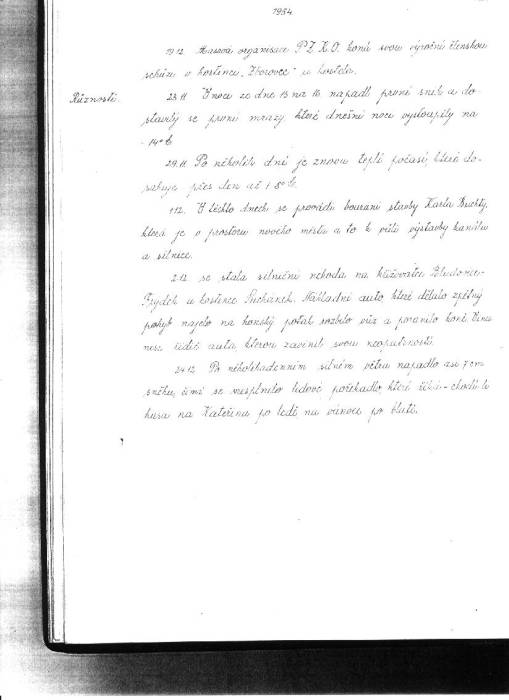 1954.
19.12. Masová organisace P.Z.K.O. koná svou výroční členskou
schůzi v hostinci "Zborovec" u kostela.
Různosti. 23.11. V noci ze dne 15 na 16 napadl první sníh a do-
stavily se první mrazy, které dnešní noci vystoupily na
- 14° C
29.11. Po několik dní je znovu teplé počasí, které do-
sahuje přes den až + 8° C.
1.12. V těchto dnech se provádí bourání stavby Karla Buchty,
která je v prostoru nového mostu a to k vůli výstavby kanálu
a silnice.
2.12. se stala silniční nehoda na křižovatce Bludovice-
Frýdek u hostince Suchánek. Nákladní auto které dělalo zpětný
pohyb najelo na koňský potah rozbilo vůz a poranilo koně. Vinu
nese řidič auta, kterou zavinil svou neopatrností.
24.12. Po několikadenním silném větru napadlo asi 7 cm
sněhu, čímž se nesplnilo lidové pořekadlo, které říká - chodí-li
husa na Kateřinu po ledě na vánoce po blatě.